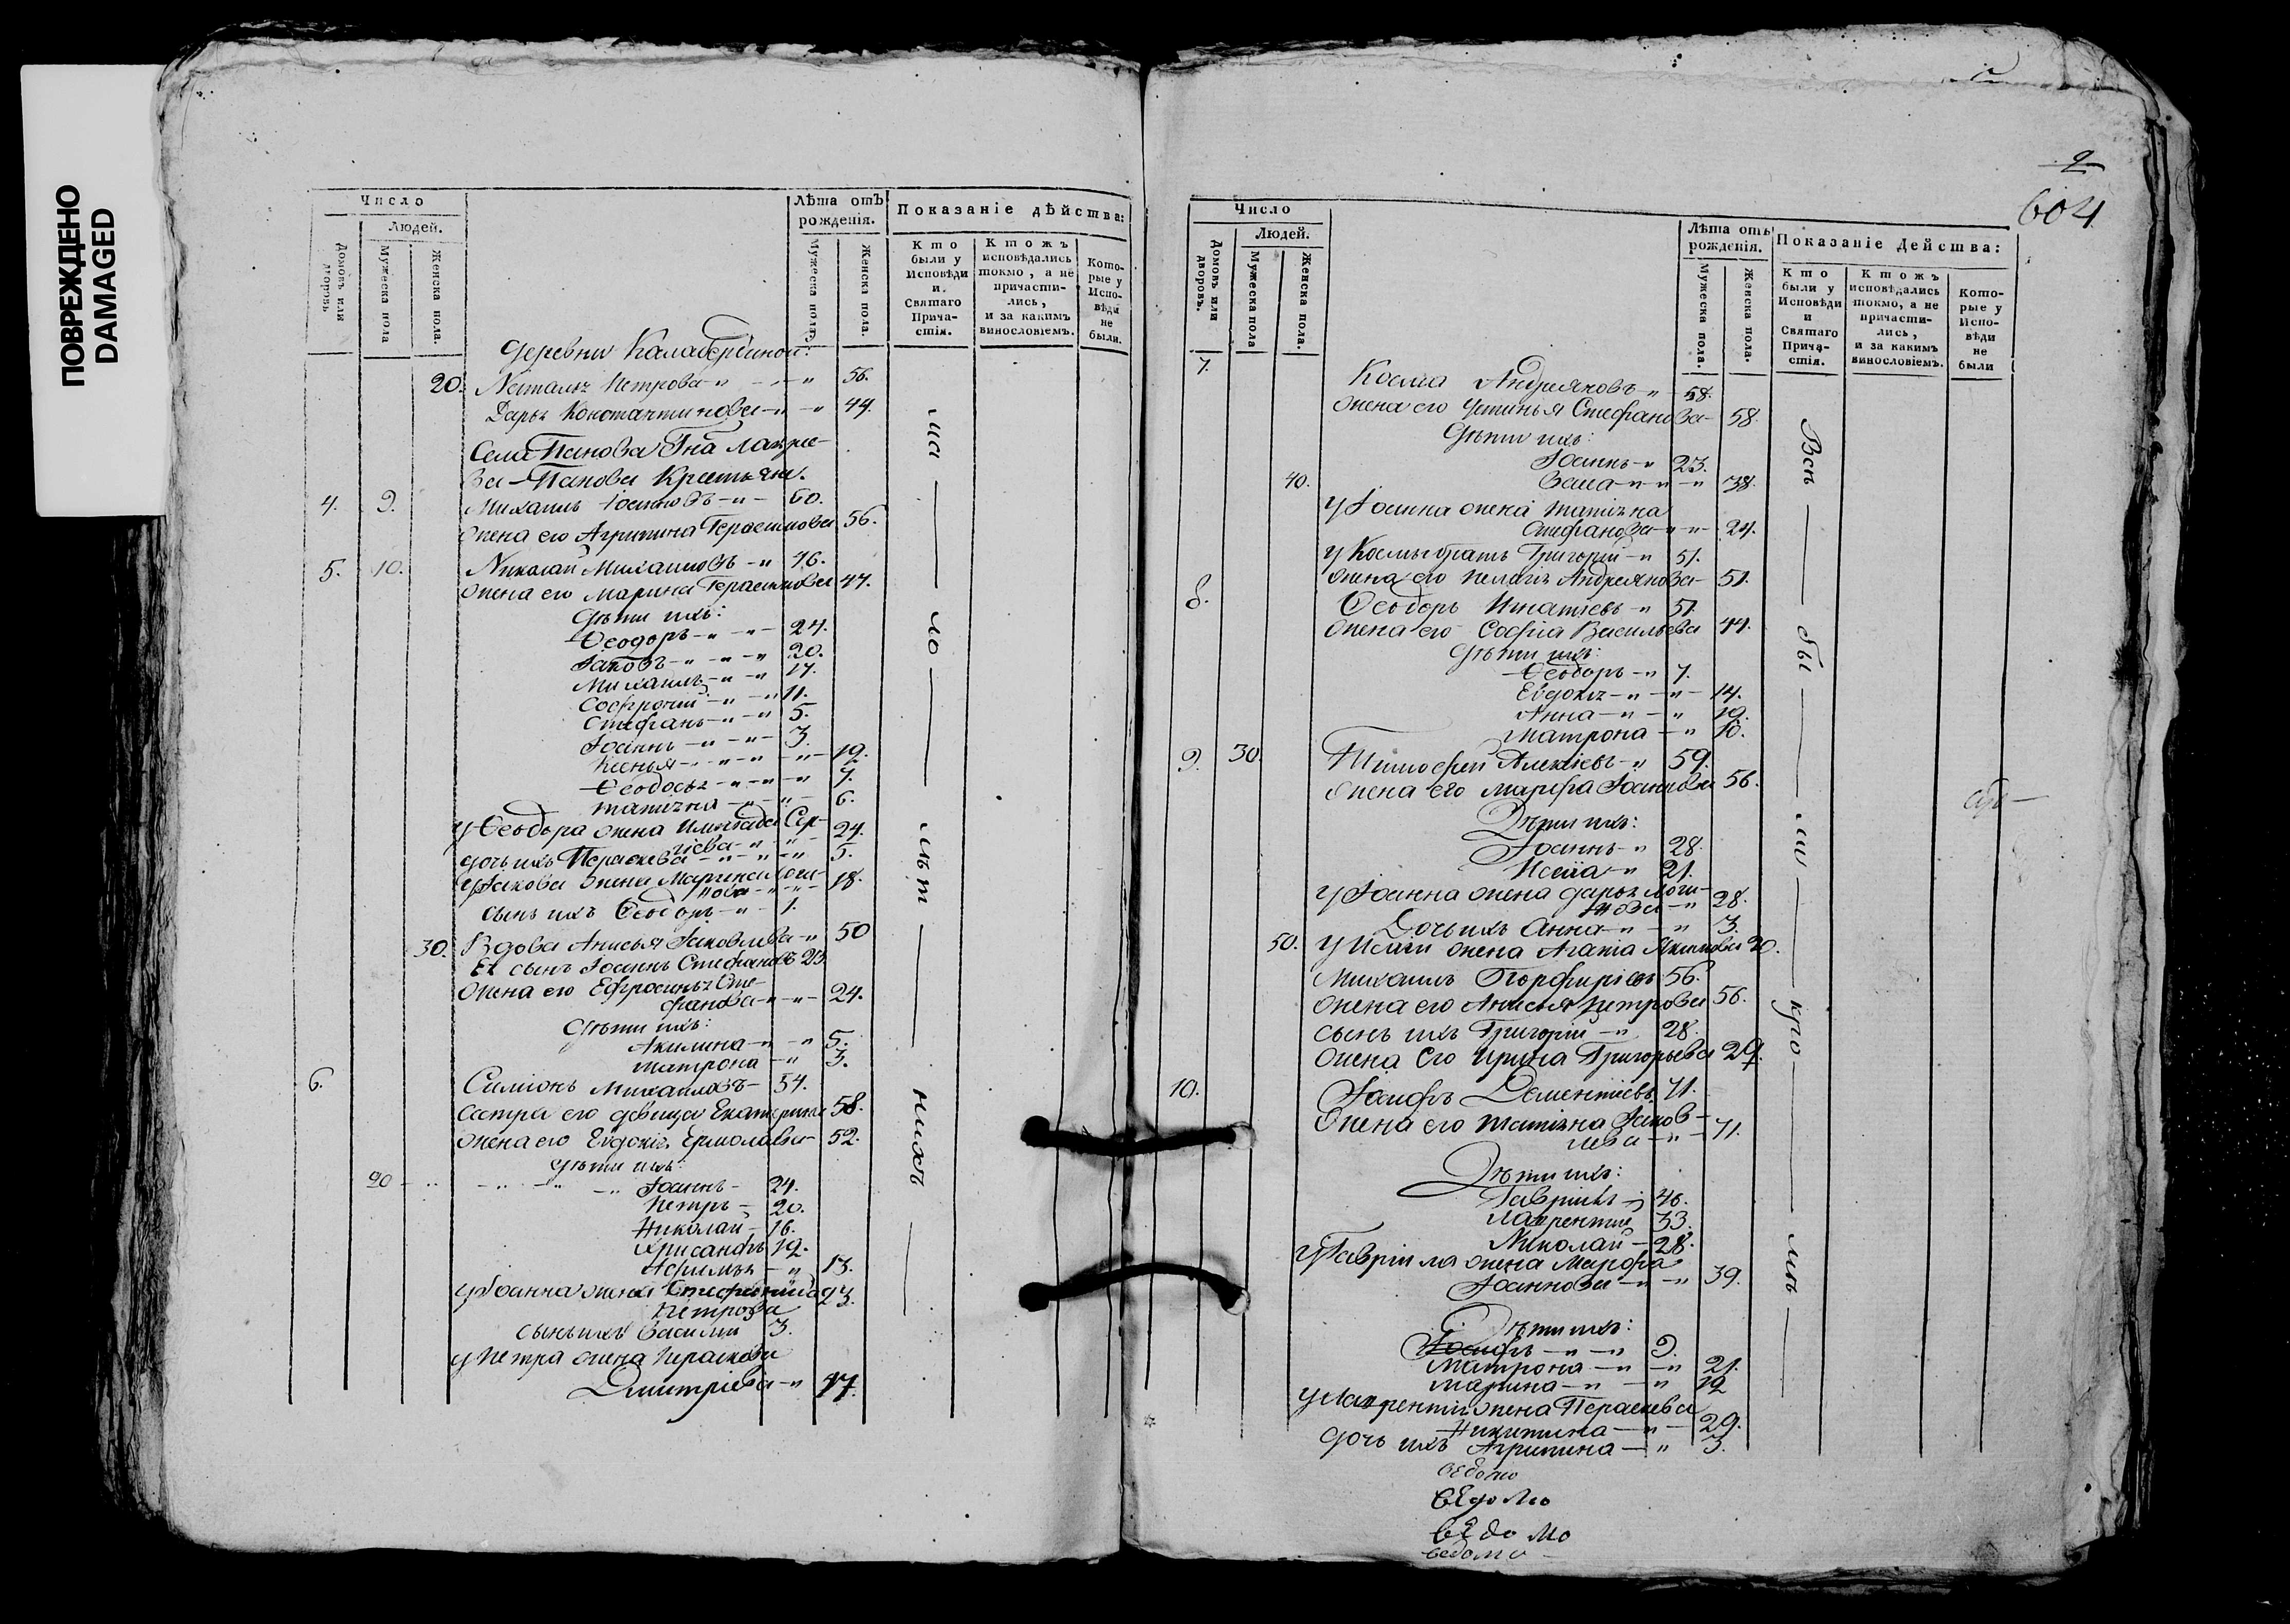 ПОВРЕЖДЕНО
DAMAGED
Число
Людей.
Домовъ или дворовъ
Мужеска пола
Женска пола.
Лѣта отъ рожденія.
Мужеска пола.
Женска пола.
Показаніе дѣйства:
Кто были у Исповѣди и Святаго Прича-стія.
Ктожъ исповѣдались токмо, а не причасти-лись, и за какимъ винословіемъ.
Кото-рые у Испо-вѣди не были.
деревни
20. Наталья Петрова 56.
Дарья Константинова 44.
Села Панова Гна Лаврие-
ва Панова Крестьяне.
4. 9. Михаилъ Іоанновъ 60.
жена его Агрипина Герасимова 56.
5. 10. Николай Михаиловъ 46.
жена его Марина Герасимова 47.
дѣти ихъ:
Ѳеодоръ 24.
Іаковъ 20.
Михаилъ 17.
Софроній 11.
Стефанъ 5.
Іоаннъ 3.
Ксенья 19.
Ѳеодосья 7.
татияна 6.
у Ѳеодора жена Сер-
гіева 24.
дочь ихъ Параскева 5.
у Іакова жена Марина Логи-
нова 18.
сынъ ихъ Ѳеодоръ 1.
30. Вдова Анисья Іаковлева 50
Ея сынъ Іоаннъ Стефановъ 23
жена его Ефросинья Сте-
фанова 24.
дѣти ихъ:
Акилина 5.
матрона 3.
6. Симіонъ Михаиловъ 54.
сестра его дѣвица Екатерина 58.
жена его Евдокія Ермолаева 52.
дѣти ихъ:
20 Іоаннъ 24.
Петръ 20.
Николай 16.
Хрисанфъ 12.
13.
у Іоанна жена Стефанида 23.
Петрова
сынъ ихъ Василій 3.
у Петра жена Параскева
Дмитріева 17.
на
ло
лѣт
нихъ
2
604
Число
Людей.
Домовъ или дворовъ.
Мужеска пола
Женска пола.
Лѣта отъ рожденія.
Мужеска пола.
Женска пола.
Показаніе Дейсшва:
Кто были у Исповѣди и Святаго Прича-стія.
Ктожъ исповѣдались токмо, а не причасти-лись, и за какимъ винословіемъ.
Кото-рые у Испо-вѣди не были
7. Косма Андреяновъ 58.
жена его Устинья Стефанова 58.
дѣти ихъ:
Іоаннъ 23.
40. 38.
у Іоанна жена татияна
Стефанова 24.
у Космы братъ Григорій 51.
жена его Пелагія Андреянова 51.
8. Ѳеодоръ Игнатіевъ 51.
жена его Софія Васильева 44.
дѣти ихъ:
Ѳеодоръ 7.
Евдокія 14.
Анна 12.
Матрона 10.
9. 30. Тимофей Алексіевъ 59.
жена его марфа Іоаннова 56.
Дѣти ихъ:
Іоаннъ 28.
Исаія 21.
у Іоанна жена дарья Логи-
нова 28.
Дочь ихъ Анна 3.
50. у Исаіи жена Агапіа Якимова 20.
Михаилъ Порфиріевъ 56.
жена его Анисья Петрова 56.
сынъ ихъ Григорій 28.
жена его ирина Григорьева 29.
10. Іосифъ Дементіевъ 71.
жена его татіяна Іаков-
лева 71.
Дѣти ихъ:
Гавріилъ 46.
Лаврентій 33.
Николай 28.
у Гавріила жена Марфа
Іоаннова 39.
Дѣти ихъ:
Іосифъ 9.
Матрона 21.
Марина 12
у Лаврентія жена Параскева
Никитина 29.
дочь ихъ Агрипина 3.
ведомо
ведомо
ведомо
ведомо
Всѣ
бы
ли